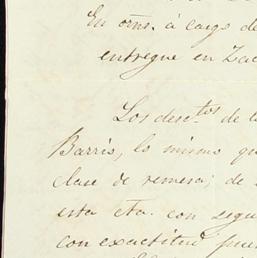 En orns. á cargo de
entregue en Zac
Los desctos de l
Barrio, lo mismo qu
clase de remesa; de
esta cta. con segu
con exactitud pue